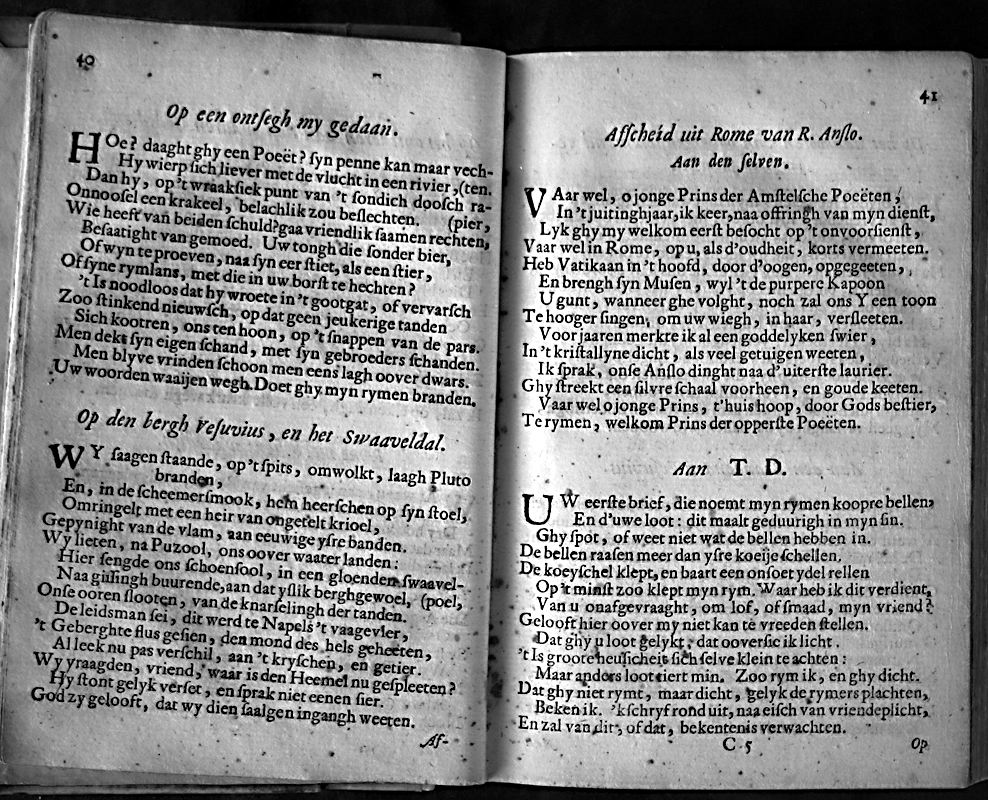 40
Op een ontſegh my gedaan.
HOe? daaght ghy een Poeët? ſyn penne kan maar vech-
Hy wierp ſich liever met de vlucht in een rivier, (ten.
Dan hy, op 't wraakſiek punt van 't ſondich dooſch ra-
Onnooſel een krakeel, belachlik zou beſlechten. (pier,
Wie heeft van beiden ſchuld? gaa vriendlik ſaamen rechten,
Beſaatight van gemoed. Uw tongh die ſonder bier,
Of wyn te proeven, naa ſyn eer ſtiet, als een ſtier,
Of ſyne rymlans, met die in uw borſt te hechten?
't Is noodloos dat hy wroete in 't gootgat, of vervarſch
Zoo ſtinkend nieuwſch, op dat geen jeukerige tanden
Sich kootren, ons ten hoon, op 't ſnappen van de pars.
Men dekt ſyn eigen ſchand, met ſyn gebroeders ſchanden.
Men blyve vrinden ſchoon men eens lagh oover dwars.
Uw woorden waaijen wegh. Doet ghy myn rymen branden.
Op den bergh Veſuvius, en het Swaaveldal.
WY ſaagen ſtaande, op 't ſpits, omwolkt, laagh Pluto
branden,
En, in de ſcheemerſmook, hem heerſchen op ſyn ſtoel,
Omringelt met een heir van ongetelt krioel,
Gepynight van de vlam, aan eeuwige yſre banden.
Wy lieten, na Puzool, ons oover waater landen:
Hier ſengde ons ſchoenſool, in een gloenden ſwaavel-
Naa giiſingh buurende, aan dat yſlik berghgewoel, (poel,
Onſe ooren ſlooten, van de knarſelingh der tanden.
De leidsman ſei, dit werd te Napels 't vaagevier,
't Geberghte flus geſien, den mond des hels geheeten,
Al leek nu pas verſchil, aan 't kryſchen, en getier.
Wy vraagden, vriend, waar is den Heemel nu geſpleeten?
Hy ſtont gelyk verſet, en ſprak niet eenen ſier.
God zy gelooft, dat wy dien ſaalgen ingangh weeten.
Af-
41
Afſcheid uit Rome van R. Anſlo.
Aan den ſelven.
VAar wel, o jonge Prins der Amſtelſche Poeëten,
In 't juitinghjaar, ik keer, naa offringh van myn dienſt,
Lyk ghy my welkom eerſt beſocht op 't onvoorſienſt,
Vaar wel in Rome, op u, als d'oudheit, korts vermeeten.
Heb Vatikaan in 't hoofd, door d'oogen, opgegeeten,
En brengh ſyn Muſen, wyl 't de purpere Kapoon
U gunt, wanneer ghe volght, noch zal ons Y een toon
Te hooger ſingen, om uw wiegh, in haar, verſleeten.
Voor jaaren merkte ik al een goddelyken ſwier,
In 't kriſtallyne dicht, als veel getuigen weeten,
Ik ſprak, onſe Anſlo dinght naa d'uiterſte laurier.
Ghy ſtreekt een ſilvre ſchaal voorheen, en goude keeten.
Vaar wel o jonge Prins, t'huis hoop, door Gods beſtier,
Te rymen, welkom Prins der opperſte Poeëten.
Aan T. D.
UW eerſte brief, die noemt myn rymen koopre bellen,
En d'uwe loot: dit maalt geduurigh in myn ſin.
Ghy ſpot, of weet niet wat de bellen hebben in.
De bellen raaſen meer dan yſre koeije ſchellen.
De koeyſchel klept, en baart een onſoet ydel rellen
Op 't minſt zoo klept myn rym. Waar heb ik dit verdient,
Van u onafgevraaght, om lof, of ſmaad, myn vriend?
Gelooft hier oover my niet kan te vreeden ſtellen.
Dat ghy u loot gelykt, dat ooverſie ik licht.
't Is groote heuſicheit ſich ſelve klein te achten:
Maar anders loot tiert min. Zoo rym ik, en ghy dicht.
Dat ghy niet rymt, maar dicht, gelyk de rymers plachten,
Beken ik. 'k ſchryf rond uit, naa eiſch van vriendeplicht,
En zal van dit, of dat, bekentenis verwachten.
C 5
Op